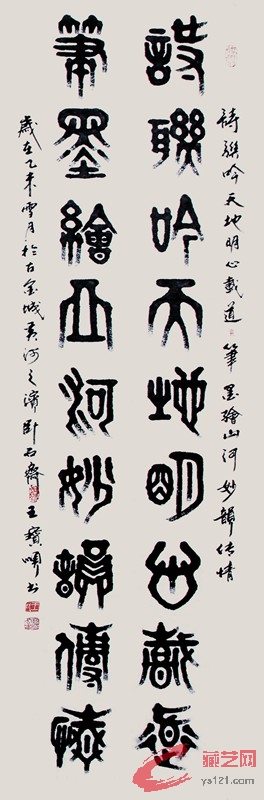 詩聯吟天地明心載道 筆墨繪山河妙韻传情
詩聯吟天地明心載道
筆墨繪山河妙韻傳情
歲在乙未雪月於古金城黄河之濱卧石齋王寶书
藏艺网
ys121.com